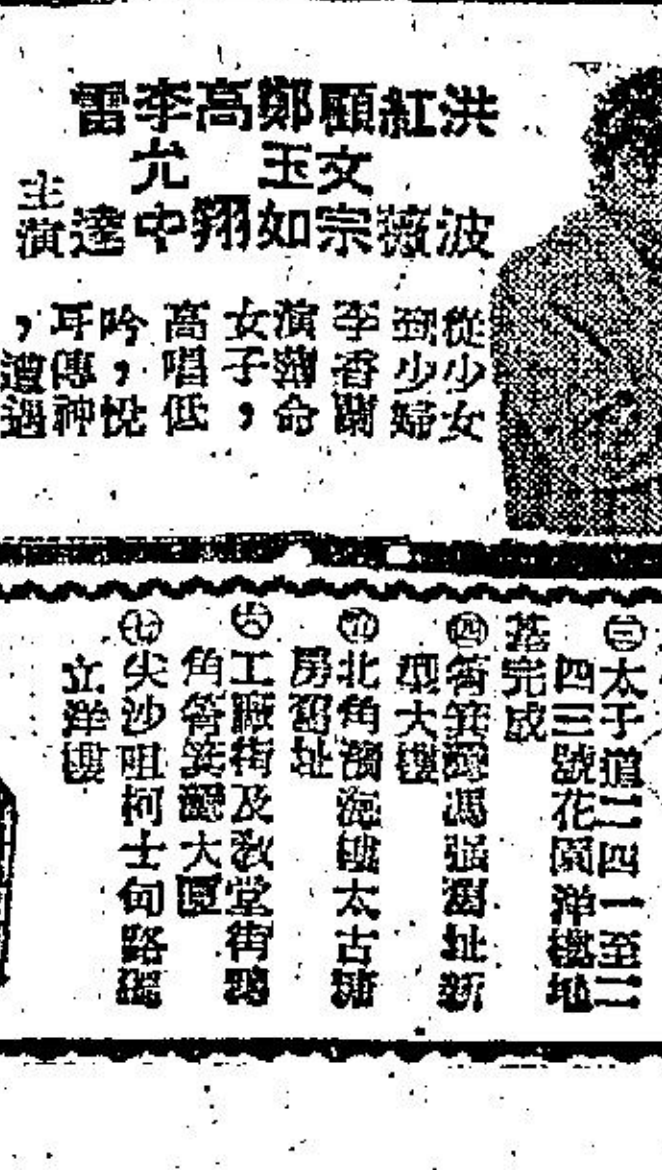 洪波
紅薇
顧文宗
鄭玉如
高翔
李允中
雷達
主演
從少女
到少婦
李香蘭
演薄命
女子，
高唱低
吟，悅
耳傳神
，遭遇
㊂太子道二四一至二
四三號花園洋樓地
基完成
㊃筲箕灣馮強舊址新
型大樓
㊄北角濱海太古糖
房舊址
㊅工廠街及教堂街轉
角筲箕灣大廈
㊆尖沙咀柯士甸路獨
立洋樓